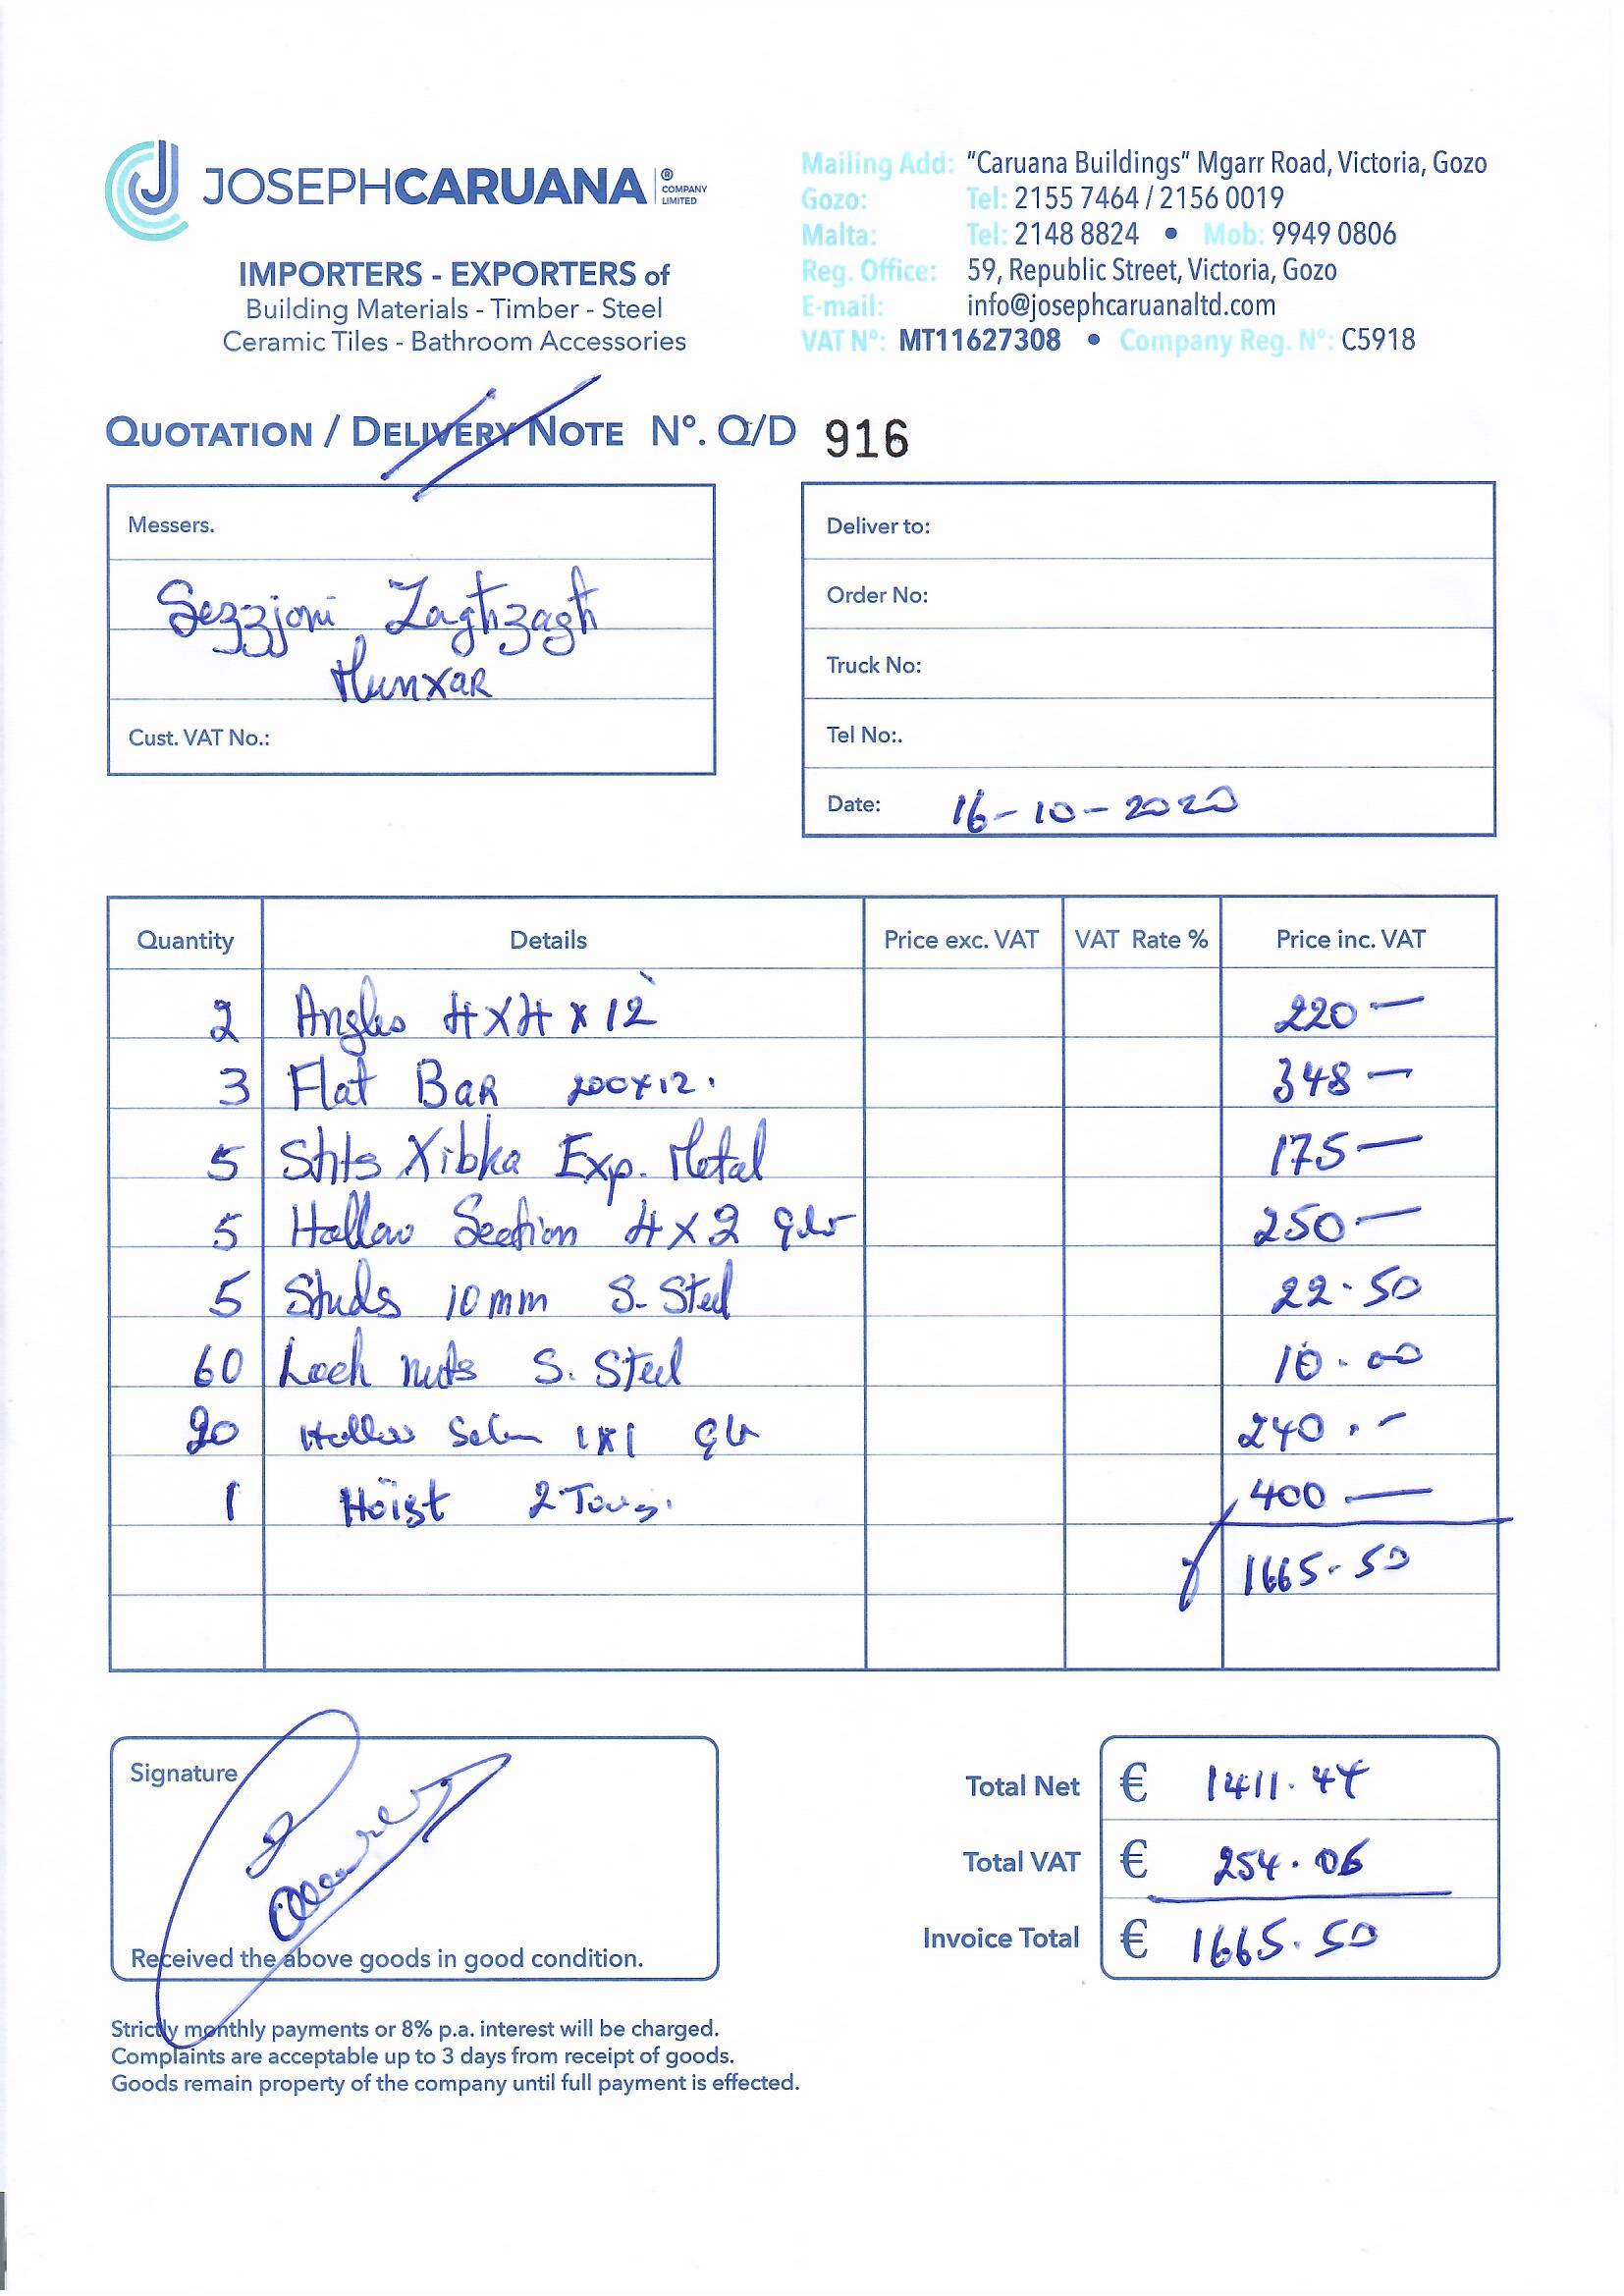 JOSEPHCARUANA ® COMPANY LIMITED
IMPORTERS - EXPORTERS of
Building Materials - Timber - Steel
Ceramic Tiles - Bathroom Accessories
Mailing Add: "Caruana Buildings" Mgarr Road, Victoria, Gozo
Gozo: Tel: 2155 7464 / 2156 0019
Malta: Tel: 2148 8824 • Mob: 9949 0806
Reg. Office: 59, Republic Street, Victoria, Gozo
E-mail: info@josephcaruanaltd.com
VAT Nº: MT11627308 • Company Reg. Nº: C5918
QUOTATION / DELIVERY NOTE Nº. Q/D 916
Messers.
Sezzjoni Zaghzagh
Munxar
Cust. VAT No.:
Deliver to:
Order No:
Truck No:
Tel No:.
Date: 16-10-2020
Quantity Details Price exc. VAT VAT Rate % Price inc. VAT
2 Angles 4 x 4 x 12' 220 —
3 Flat Bar 200x12. 348 —
5 Shts Xibka Exp. Metal 175 —
5 Hollow Section 4 x 2 250 —
5 Studs 10mm S. Steel 22.50
60 Lock nuts S. Steel 10.00
20 Hollow 1x1 240.-
1 Hoist 2 Tons. 400 —
1665.50
Signature
Received the above goods in good condition.
Total Net € 1411.44
Total VAT € 254.06
Invoice Total € 1665.50
Strictly monthly payments or 8% p.a. interest will be charged.
Complaints are acceptable up to 3 days from receipt of goods.
Goods remain property of the company until full payment is effected.